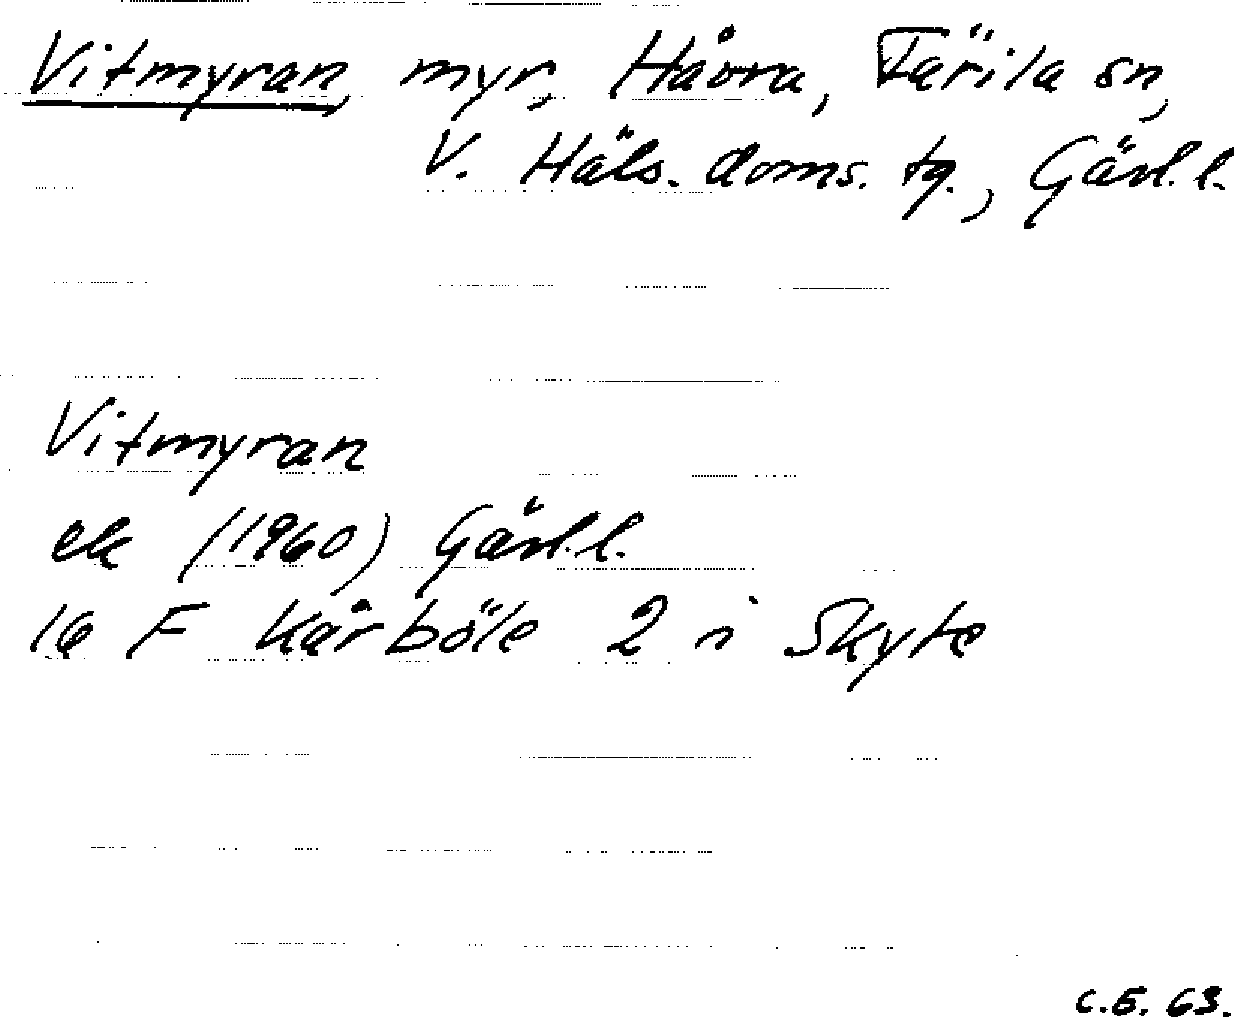 Vitmyran, myr, Håvra, Färila sn,
V. Häls. doms. tg., Gävl.l.
Vitmyran
ek (1960) Gävl.l.
16 F Kårböle 2 i Skyte
C.E. 63.